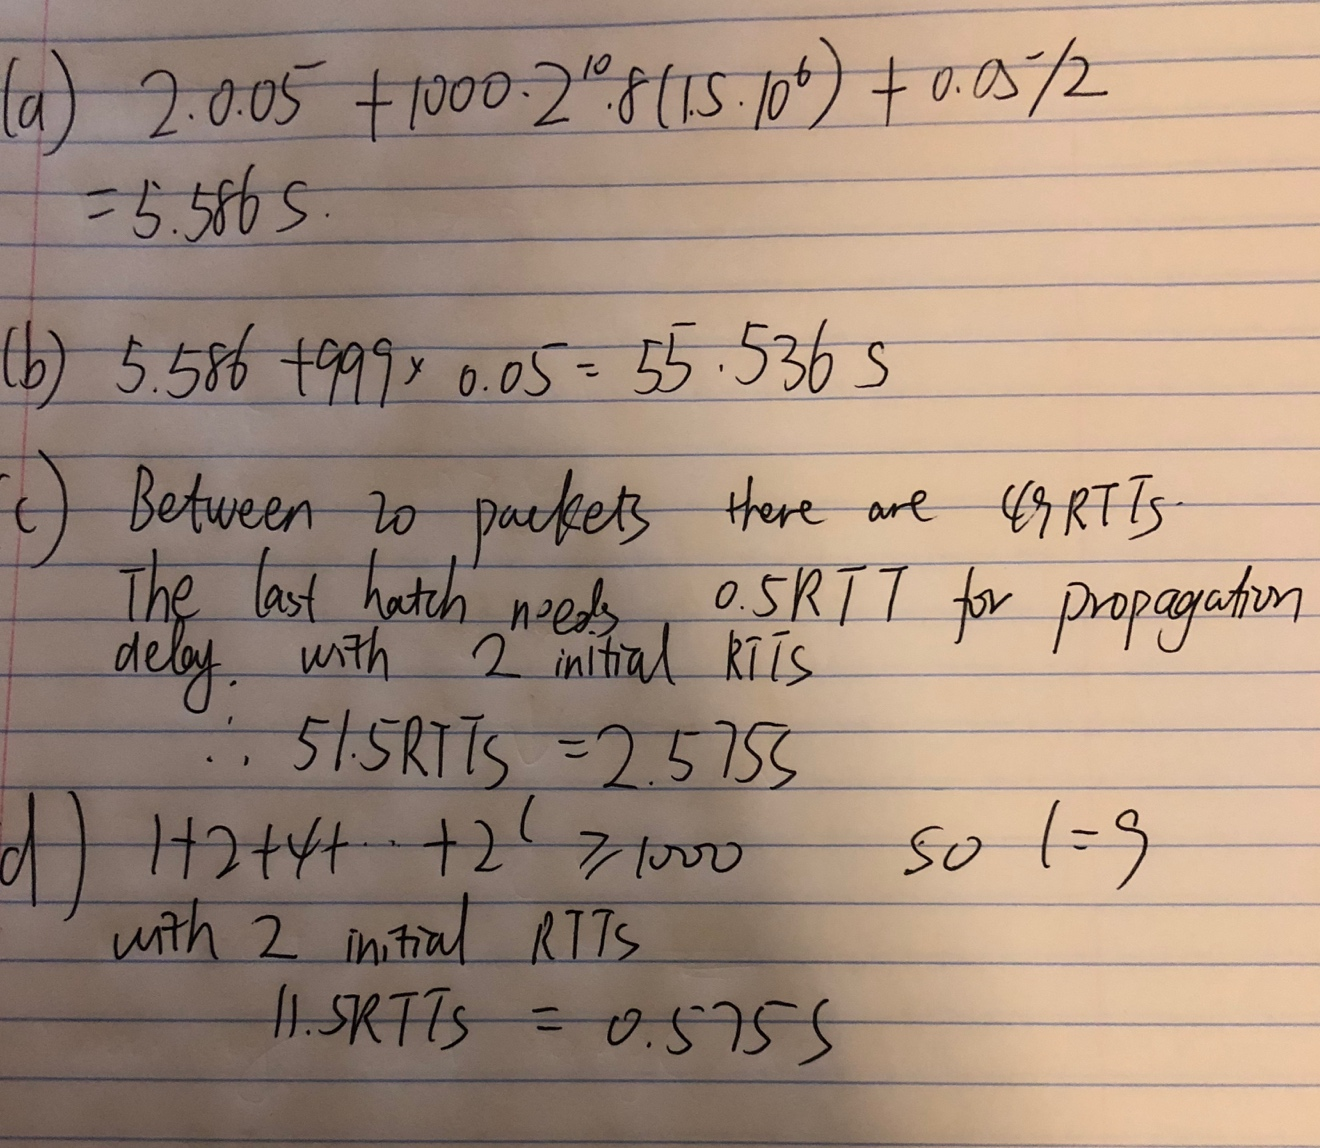 (a) 2·0.05 + 1000·2¹⁰·8(1.5·10⁶) + 0.05/2
= 5.586 s.
(b) 5.586 + 999 × 0.05 = 55.536 s
c) Between 20 packets there are 49 RTTs.
The last hatch needs 0.5RTT for propagation
delay. with 2 initial RTTs
∴ 51.5RTTs = 2.575s
d) 1+2+4+...+2^l ≥ 1000 so l=9
with 2 initial RTTs
11.5RTTs = 0.575s